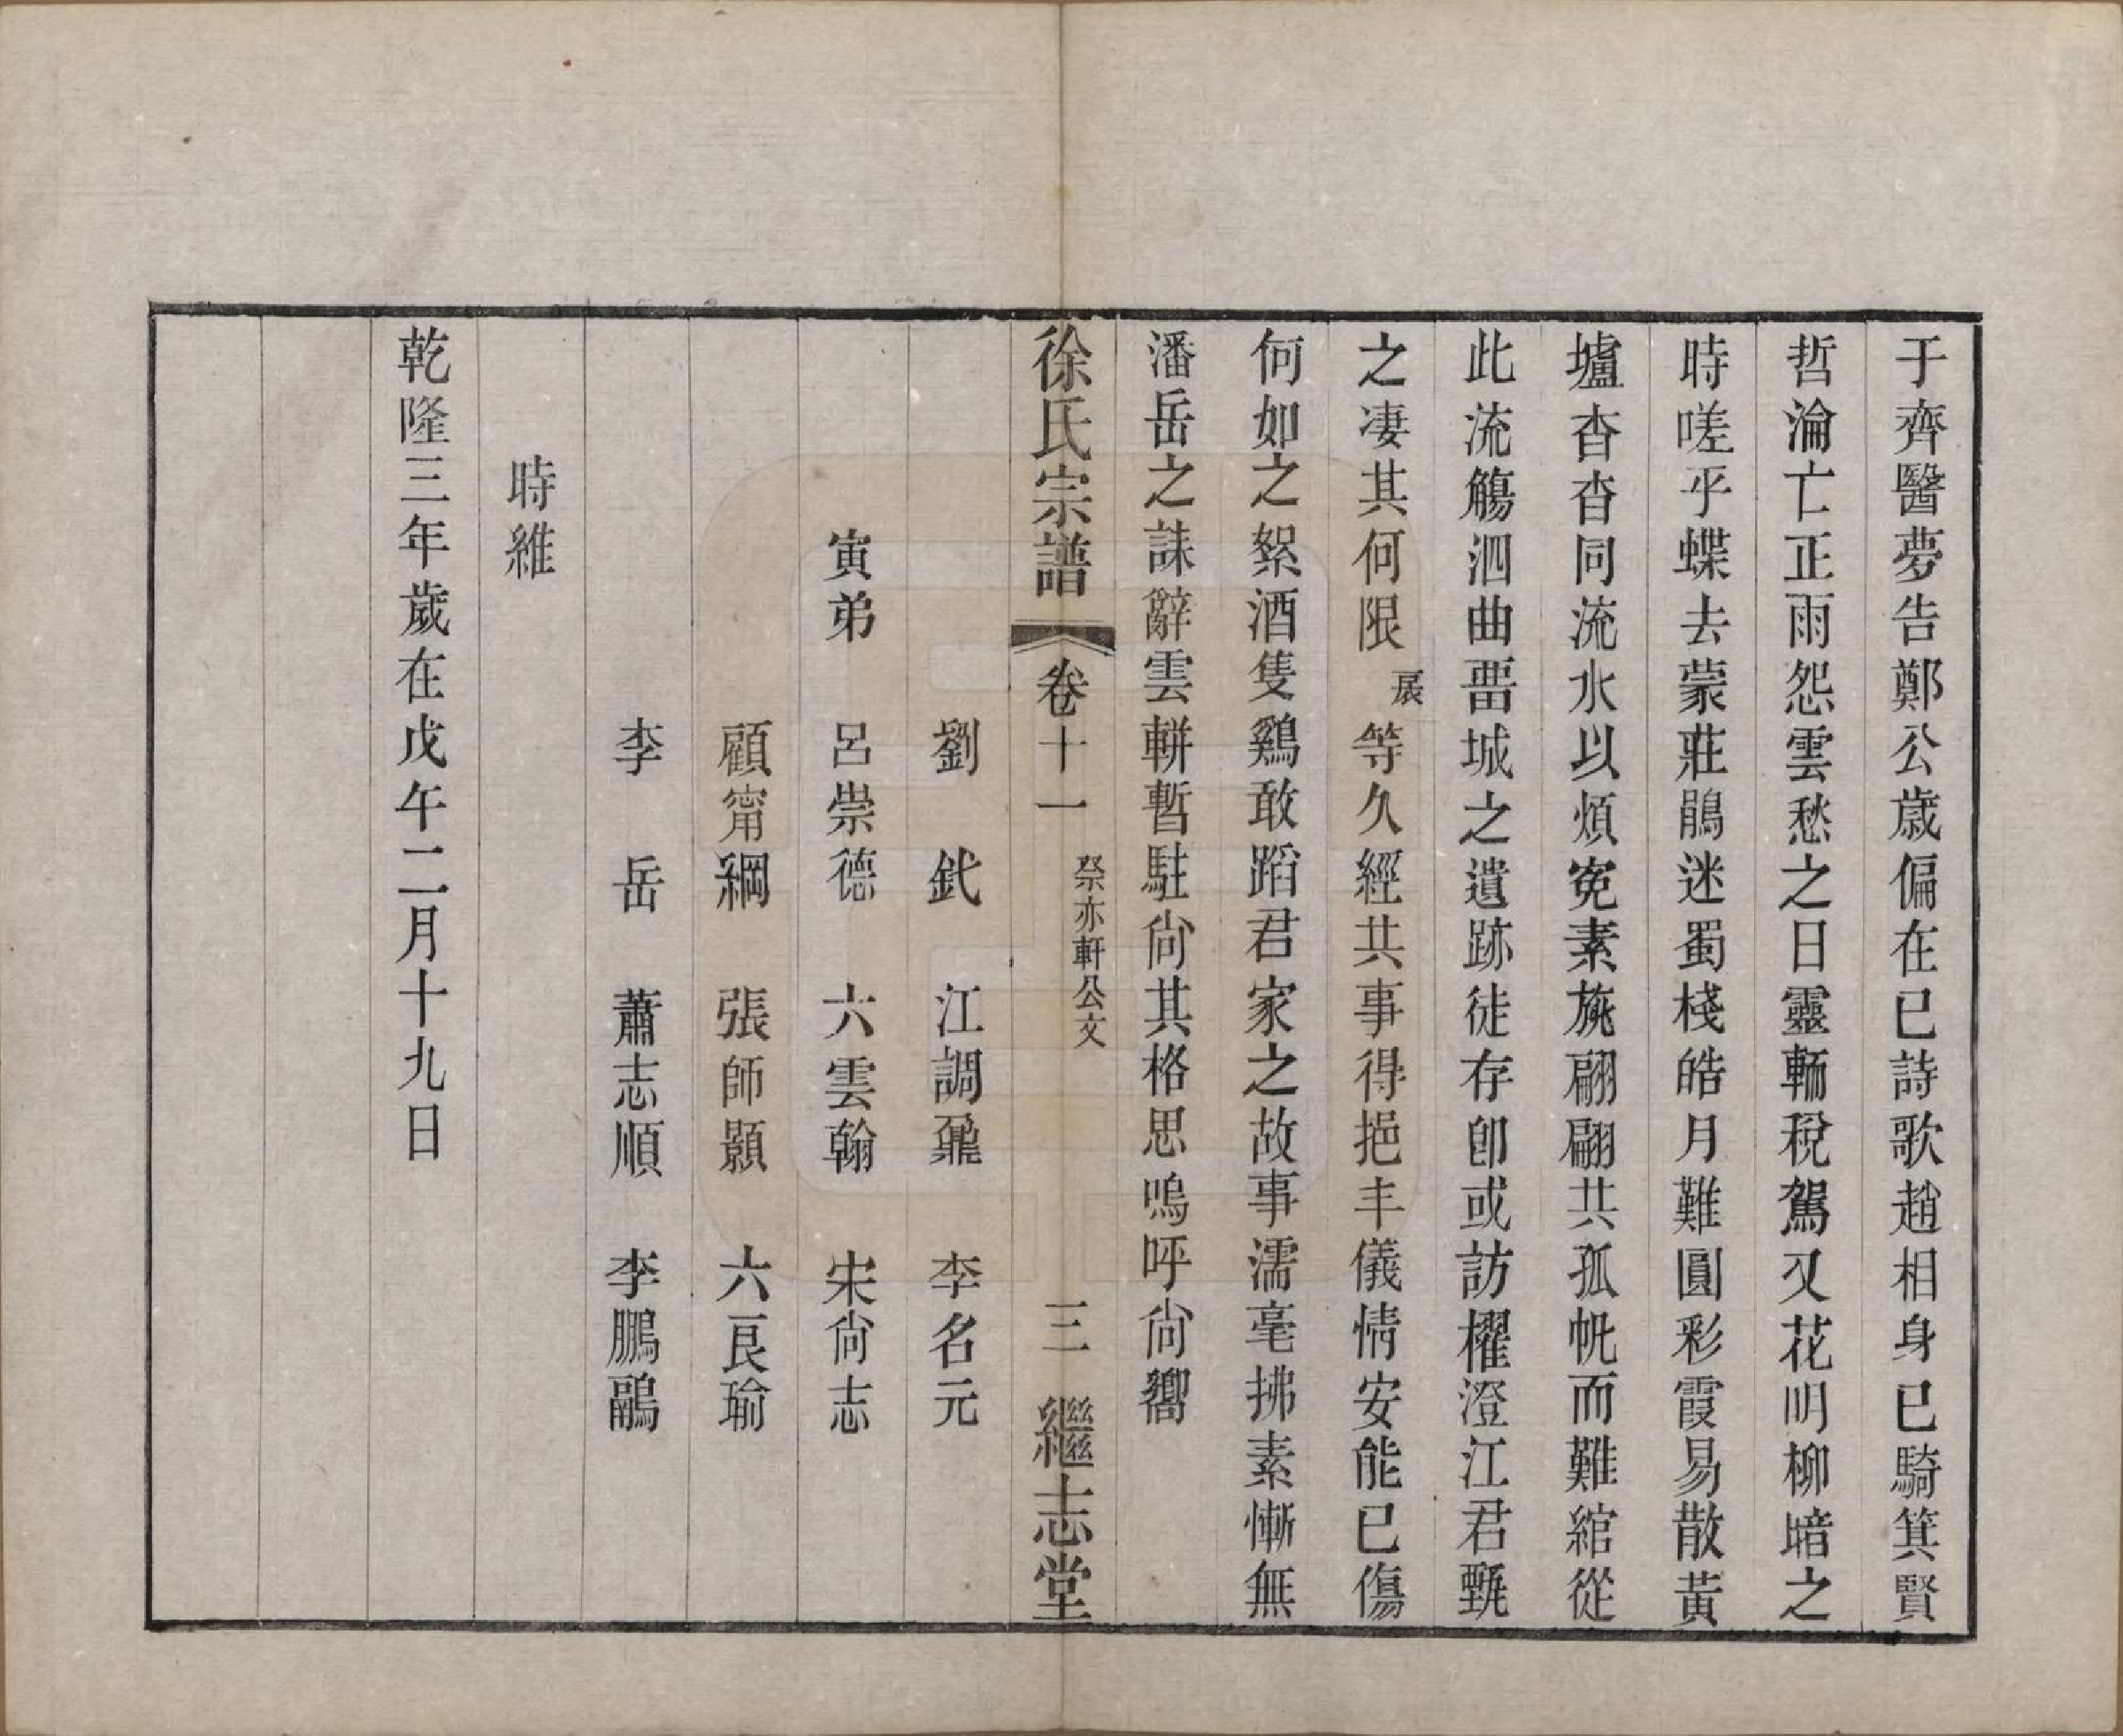 于齊醫夢告鄭公歲偏在巳詩歌趙相身已騎箕賢
哲淪亡正雨怨雲愁之日靈輀稅駕又花明柳暗之
時嗟乎蝶去蒙莊鵑迷蜀棧皓月難圓彩霞易散黃
壚杳杳同流水以煩寃素旐翩翩共孤帆而難綰從
此流觴泗曲畱城之遺跡徒存卽或訪櫂澄江君甎
之凄其何限展等久經共事得挹丰儀情安能已傷
何如之絮酒隻鷄敢蹈君家之故事濡毫拂素慚無
潘岳之誄辭雲軿暫駐尙其格思嗚呼尙嚮
徐氏宗譜 卷十一 祭亦軒公文 三 繼志堂
劉 釴 江調鼐 李名元
寅弟 呂崇德 六雲翰 宋尙志
顧甯綱 張師顥 六良瑜
李 岳 蕭志順 李鵬鷸
時維
乾隆三年歲在戊午二月十九日